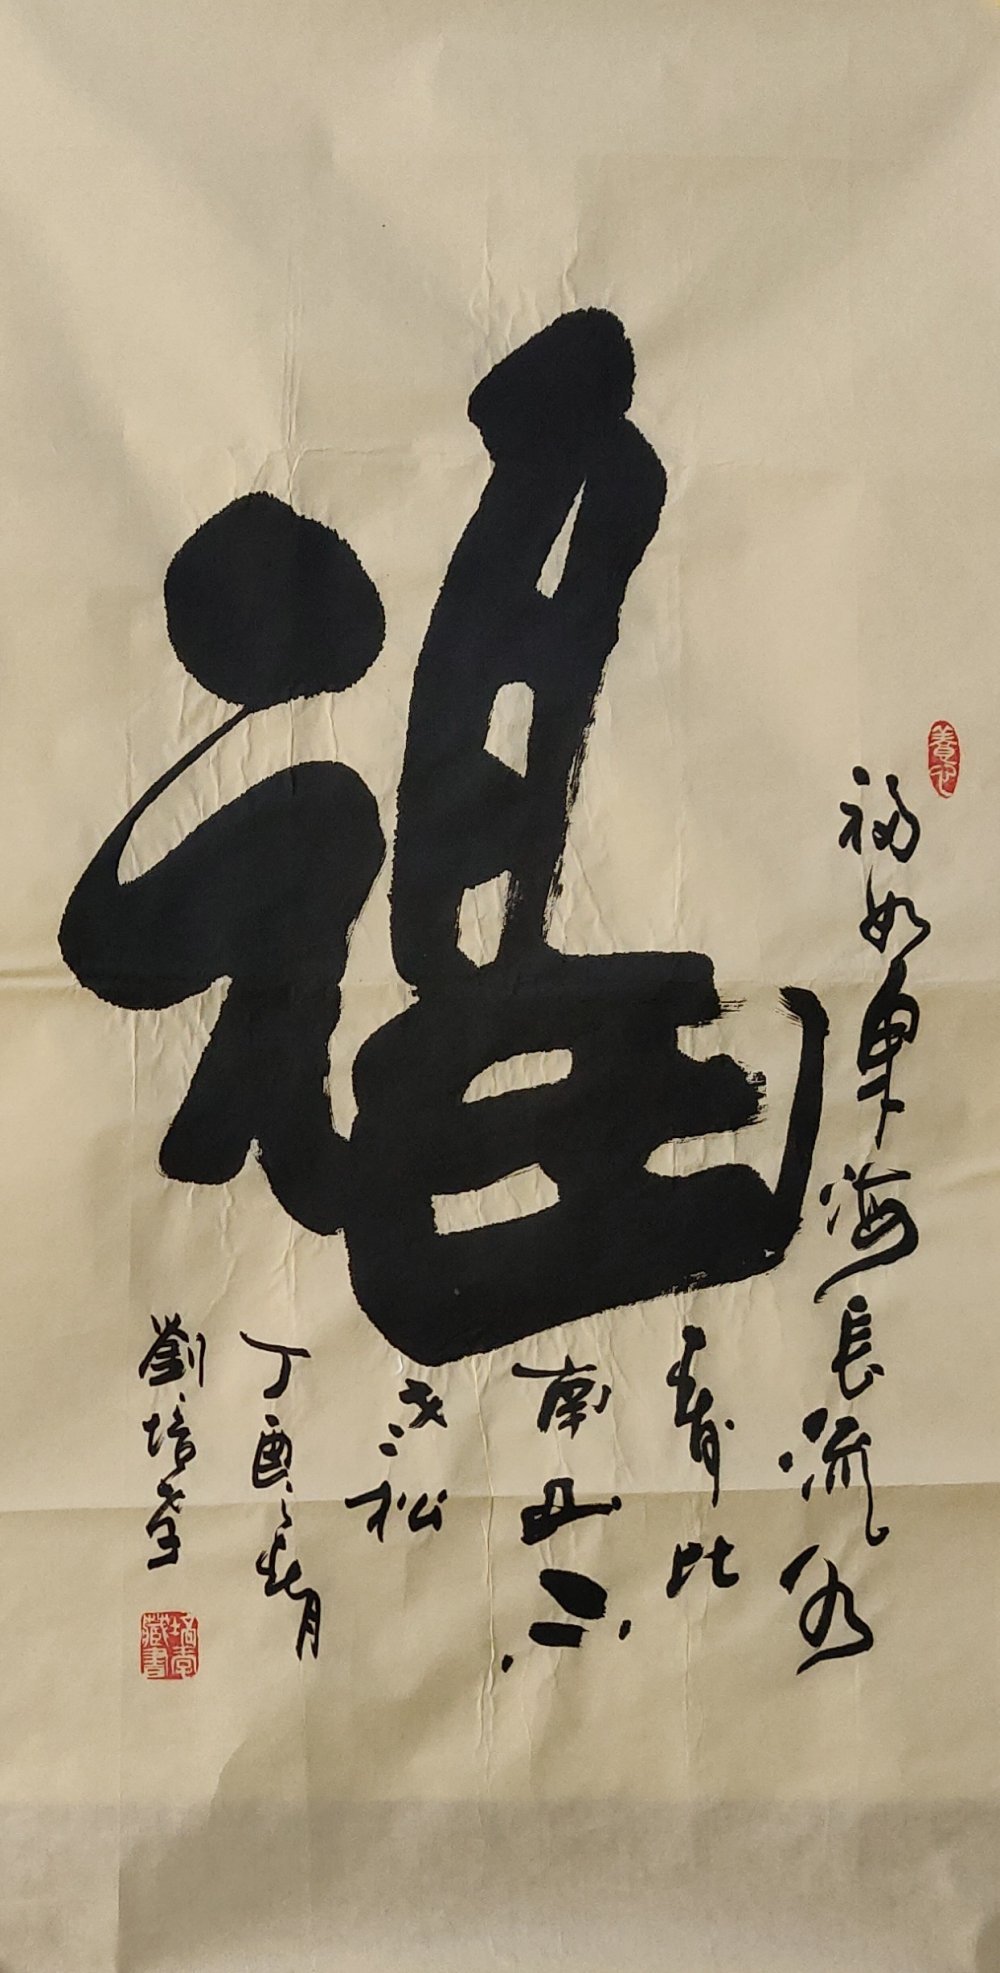 福
養心
福如東海長流水
壽比
南山不
老松
丁酉月
劉培孝
培孝藏書